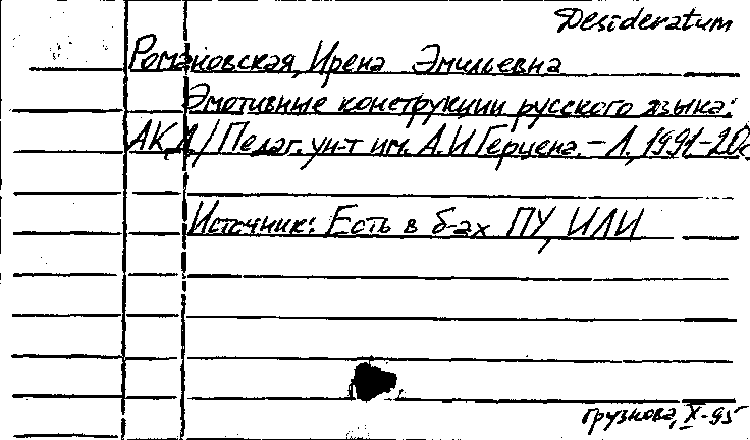 Desideratum
Романовская, Ирена Эмильевна
Эмотивные конструкции русского языка:
АКД / Педаг. ун-т им. А.И Герцена. – Л., 1991 – 20с
Источник: Есть в б-ах ПУ, ИЛИ
Грузнова, X-95